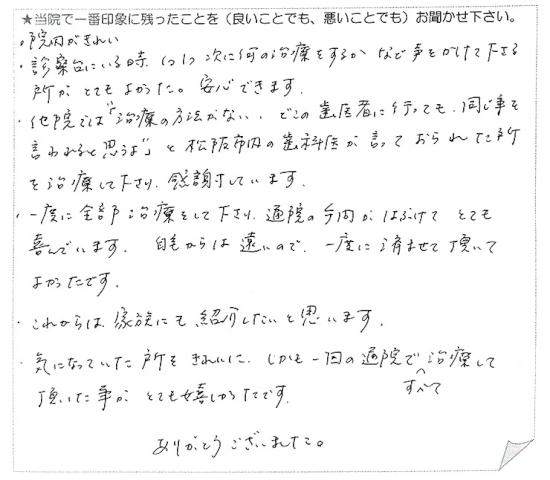 ★当院で一番印象に残ったことを（良いことでも、悪いことでも）お聞かせ下さい。
・院内がきれい
・診察台にいる時、1つ1つ次に何の治療をするか など声をかけて下さる
所が とてもよかった。安心できます.
・他院では「治療の方法がない、どこの歯医者に行っても、同じ事を
言われると思うよ」と松阪市内の歯科医が言っておられた所
を治療して下さり、感謝しています.
・一度に全部治療をして下さり、通院の手間がはぶけて とても
喜んでいます. 自宅からは遠いので、一度に済ませて頂いて
よかったです.
・これからは、家族にも、紹介したいと思います.
・気になっていた所を きれいに、しかも一回の通院で治療して
すべて
頂いた事が とても嬉しかったです.
ありがとうございました。